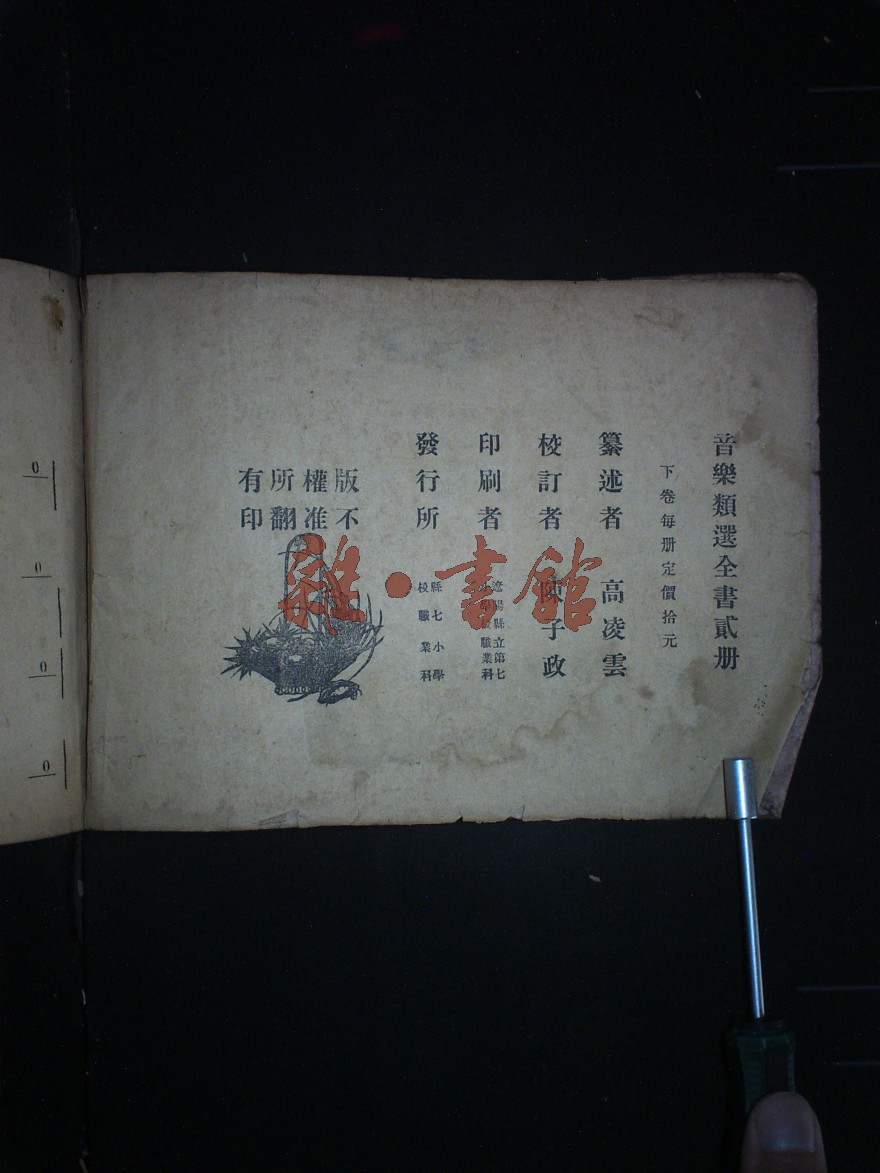 音樂類選全書貳册
下卷每册定價拾元
纂述者 高凌雲
校訂者 子政
印刷者 遼陽縣立第七 職業科
發行所 縣七小學校職業科
版權所有
不准翻印
雜·書館
0
0
0
0